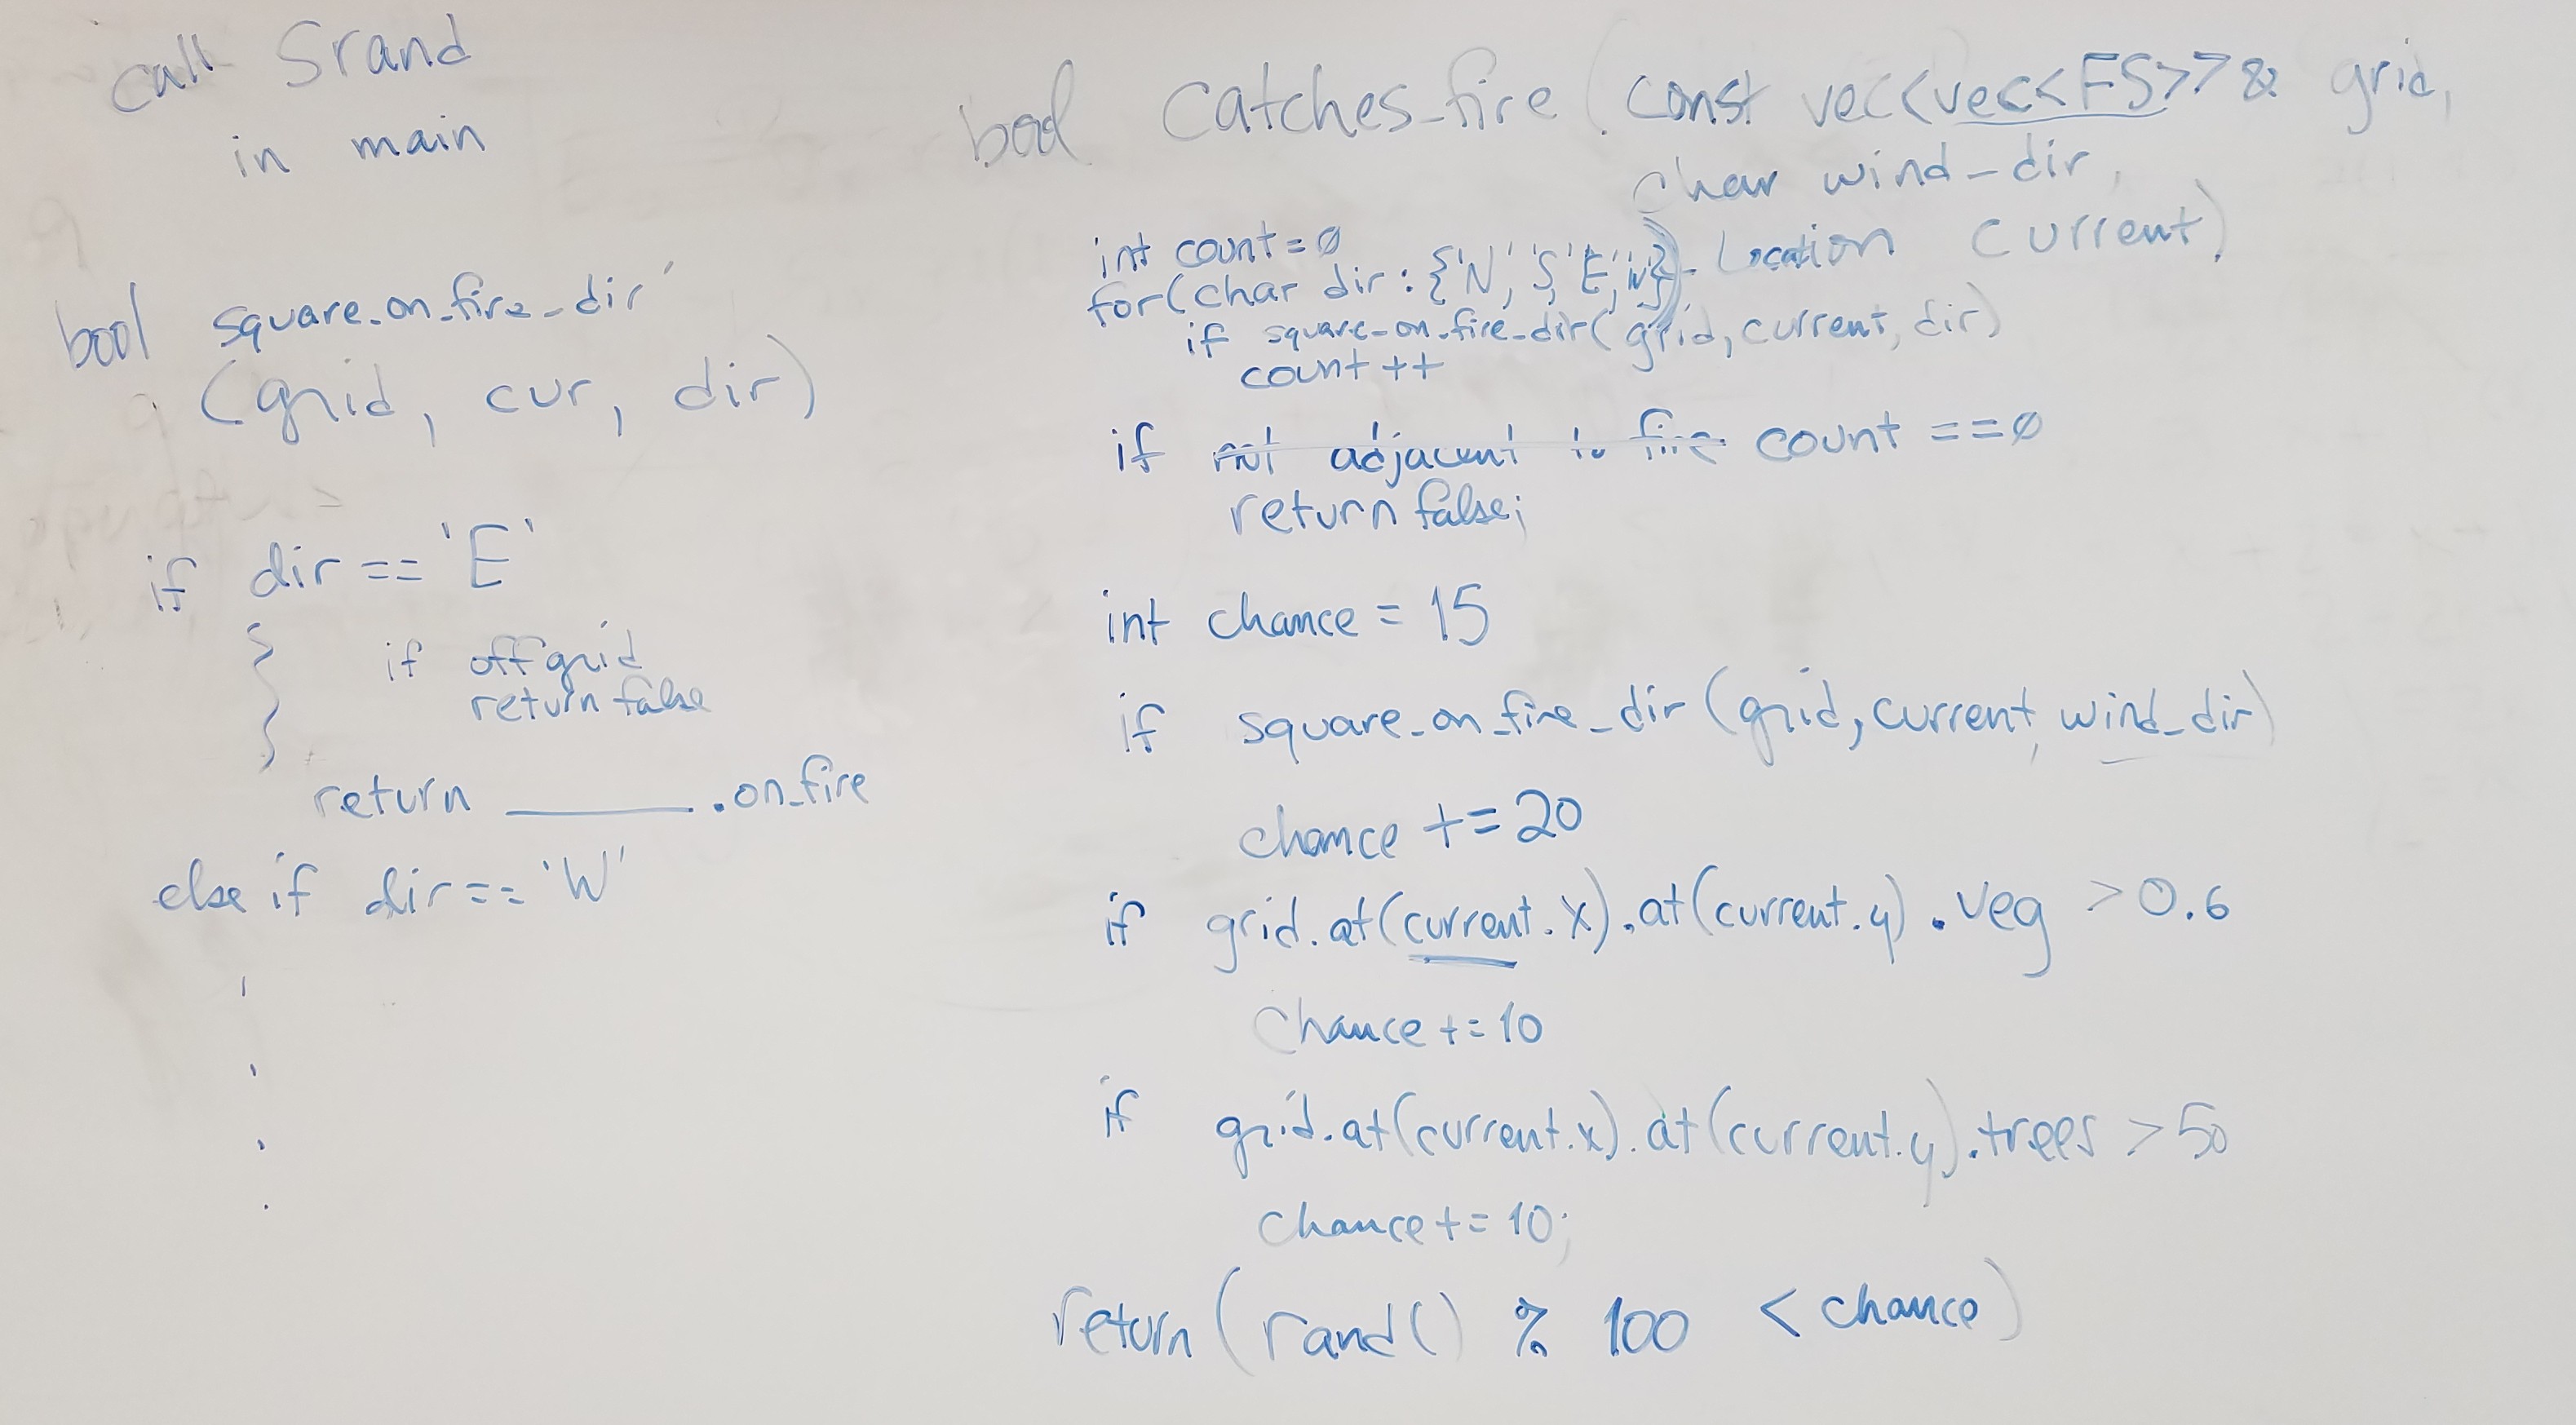 call Srand
in main
bool square_on_fire_dir
(grid, cur, dir)
if dir == 'E'
{ if off grid
return false
}
return ______ .on_fire
else if dir == 'W'
bool catches_fire (const vec<vec<FS>>& grid,
char wind_dir,
Location current)
int count = 0
for(char dir : {'N', 'S', 'E', 'W'})
if square_on_fire_dir(grid, current, dir)
count ++
if not adjacent to fire count == 0
return false;
int chance = 15
if square_on_fire_dir (grid, current, wind_dir)
chance += 20
if grid.at(current.x).at(current.y).veg > 0.6
chance += 10
if grid.at(current.x).at(current.y).trees > 50
chance += 10;
return (rand() % 100 < chance)